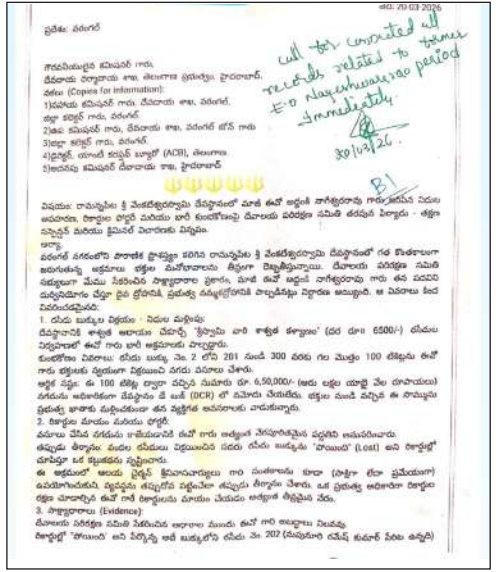 తేది: 20-03-2026
ప్రదేశం: వరంగల్
call for connected all
records related to former
E.O Nageshwar rao period
Immediately.
20/03/26.
B1
గౌరవనీయులైన కమిషనర్ గారు,
దేవాదాయ ధర్మాదాయ శాఖ, తెలంగాణ ప్రభుత్వం, హైదరాబాద్.
నకలు (Copies for information):
1)సహాయ కమిషనర్ గారు, దేవాదాయ శాఖ, వరంగల్.
జిల్లా కలెక్టర్ గారు, వరంగల్.
2)ఉప కమిషనర్ గారు, దేవాదాయ శాఖ, వరంగల్ జోన్ గారు
3)జిల్లా కలెక్టర్ గారు, వరంగల్.
4)డైరెక్టర్, యాంటీ కరప్షన్ బ్యూరో (ACB), తెలంగాణ.
5)అదనపు కమిషనర్ దేవాదాయ శాఖ, హైదరాబాద్
విషయం: రామన్నపేట శ్రీ వేంకటేశ్వరస్వామి దేవస్థానంలో మాజీ ఈవో అద్దంకి నాగేశ్వరరావు గారు జరిపిన నిధుల
అపహరణ, రికార్డుల ఫోర్జరీ మరియు భారీ కుంభకోణంపై దేవాలయ పరిరక్షణ సమితి తరపున ఫిర్యాదు - తక్షణ
సస్పెన్షన్ మరియు క్రిమినల్ విచారణకు విన్నపం.
ఆర్యా,
వరంగల్ నగరంలోని చారిత్రాత్మక ప్రాశస్త్యం కలిగిన రామన్నపేట శ్రీ వేంకటేశ్వరస్వామి దేవస్థానంలో గత కొంతకాలంగా
జరుగుతున్న అక్రమాలు భక్తుల మనోభావాలను తీవ్రంగా దెబ్బతీస్తున్నాయి. దేవాలయ పరిరక్షణ సమితి
సభ్యులుగా మేము సేకరించిన సాక్ష్యాధారాల ప్రకారం, మాజీ ఈవో అద్దంకి నాగేశ్వరరావు గారు తన పదవిని
దుర్వినియోగం చేస్తూ దైవ ద్రోహానికి, ప్రభుత్వ నమ్మకద్రోహానికి పాల్పడినట్లు నిర్ధారణ అయ్యింది. ఆ వివరాలు కింద
వివరించడమైనది:
1. రసీదు బుక్కుల విక్రయం - నిధుల మళ్లింపు:
దేవస్థానానికి శాశ్వత ఆదాయం చేకూర్చే "శ్రీస్వామి వారి శాశ్వత కళ్యాణం" (ధర రూ॥ 6500/-) రసీదుల
నిర్వహణలో ఈవో గారు భారీ అక్రమాలకు పాల్పడ్డారు.
కుంభకోణం వివరాలు: రసీదు బుక్కు నెం. 2 లోని 201 నుండి 300 వరకు గల మొత్తం 100 టికెట్లను ఈవో
గారు భక్తులకు స్వయంగా విక్రయించి నగదు వసూలు చేశారు.
ఆర్థిక నష్టం: ఈ 100 టికెట్ల ద్వారా వచ్చిన సుమారు రూ. 6,50,000/- (ఆరు లక్షల యాభై వేల రూపాయలు)
నగదును అధికారికంగా దేవస్థానం డే బుక్ (DCR) లో నమోదు చేయలేదు. భక్తుల నుండి వచ్చిన ఈ సొమ్మును
ప్రభుత్వ ఖాతాకు మళ్లించకుండా తన వ్యక్తిగత అవసరాలకు వాడుకున్నారు.
2. రికార్డుల మాయం మరియు ఫోర్జరీ:
వసూలు చేసిన నగదును కాజేయడానికి ఈవో గారు అత్యంత నేరపూరితమైన పద్ధతిని అనుసరించారు.
తప్పుడు తీర్మానం: వందల రసీదులు విక్రయించిన సదరు రసీదు బుక్కును "పోయింది" (Lost) అని రికార్డుల్లో
చూపిస్తూ ఒక కట్టుకథను సృష్టించారు.
ఈ అక్రమంలో ఆలయ చైర్మన్ శ్రీనివాసాచార్యులు గారి సంతకాలను కూడా (సాక్షిగా లేదా ప్రమేయంగా)
ఉపయోగించుకుని, వ్యవస్థను తప్పుదోవ పట్టించేలా తప్పుడు తీర్మానం చేశారు. ఒక ప్రభుత్వ అధికారిగా రికార్డుల
రక్షణ చూడాల్సిన ఈవో గారే రికార్డులను మాయం చేయడం అత్యంత తీవ్రమైన నేరం.
3. సాక్ష్యాధారాలు (Evidence):
దేవాలయ పరిరక్షణ సమితి సేకరించిన ఆధారాల ముందు ఈవో గారి అబద్ధాలు నిలవవు.
రికార్డుల్లో "పోయింది" అని పేర్కొన్న అదే బుక్కులోని రసీదు నెం. 202 (మపూనూరి రమేష్ కుమార్ పేరిట ఉన్నది)